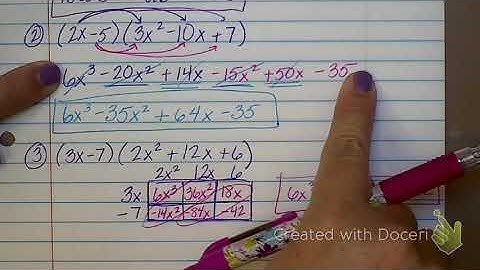 ② (2x-5)(3x²-10x+7)
6x³ -20x² +14x -15x² +50x -35
6x³ -35x² + 64x -35
③ (3x-7)(2x²+12x+6)
2x² 12x 6
3x 6x³ 36x² 18x
-7 -14x² -84x -42
6x
Created with Doceri